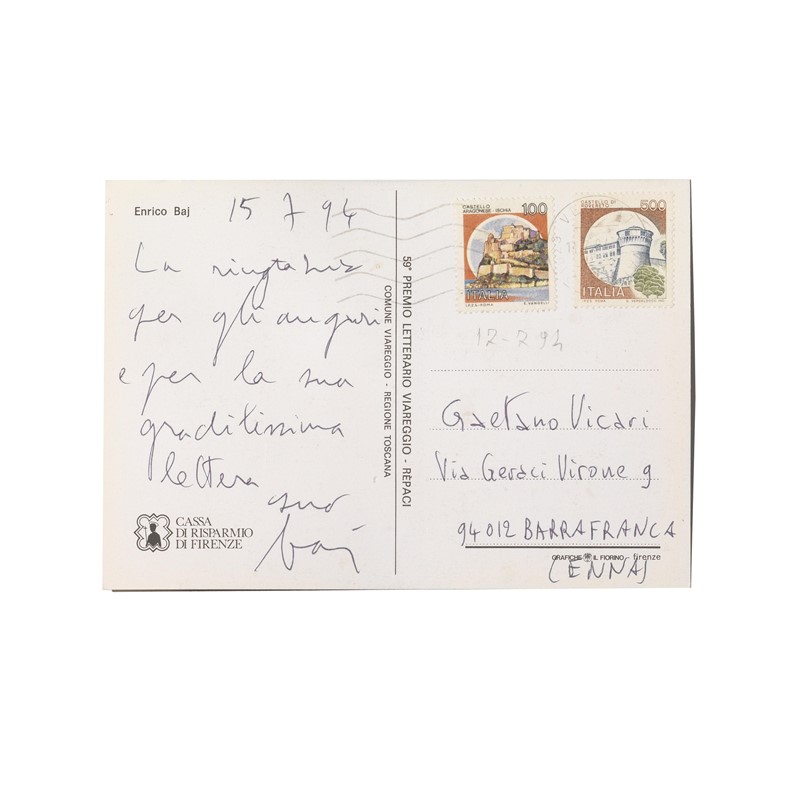 Enrico Baj
15 7 94
La ringrazio
per gli auguri
e per la sua
graditissima
lettera
suo
baj
CASSA
DI RISPARMIO
DI FIRENZE
59° PREMIO LETTERARIO VIAREGGIO - RÈPACI
COMUNE VIAREGGIO - REGIONE TOSCANA
CASTELLO
ARAGONESE - ISCHIA
100
ITALIA
I.P.Z.S. ROMA
CASTELLO DI
ROVERETO
500
ITALIA
I.P.Z.S. ROMA
12-7 94
Gaetano Vicari
Via Geraci Virone 9
94012 BARRAFRANCA
GRAFICHE IL FIORINO - firenze
(ENNA)